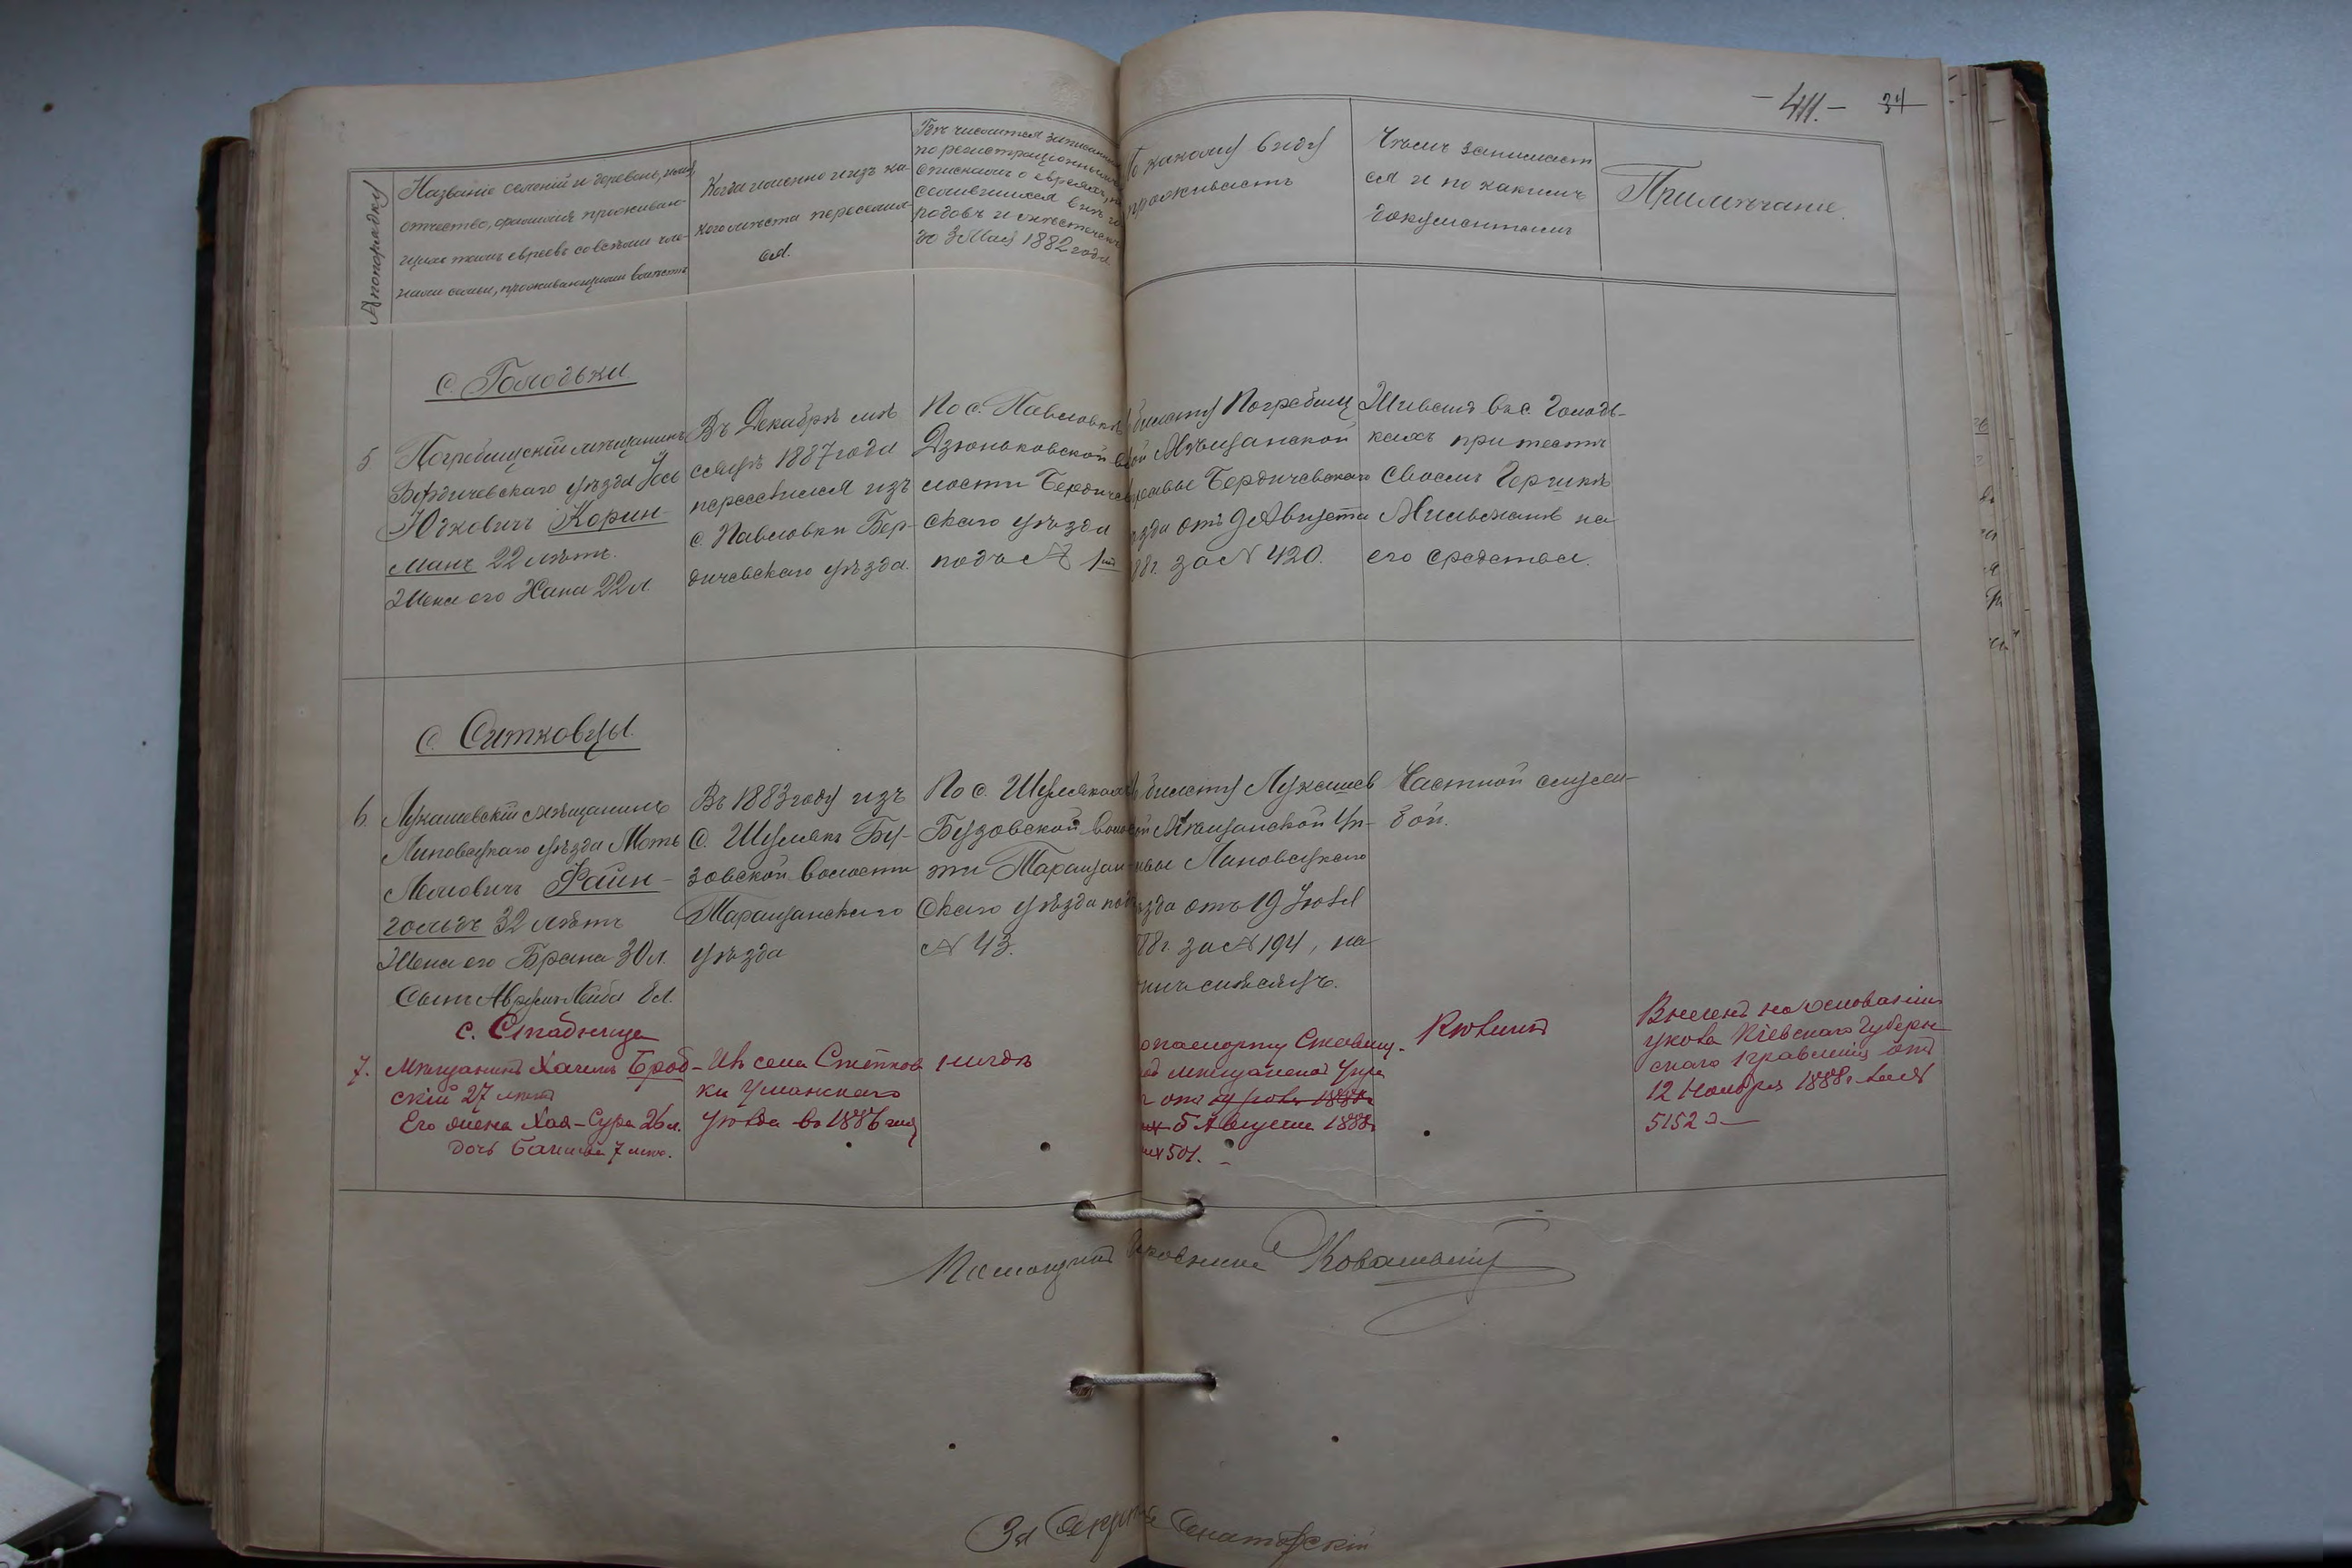 -411.- 34
№ по порядку
Названіе селеній и деревень, имя,
отчество, фамилія проживаю-
щихъ тамъ евреевъ со всѣми чле-
нами семьи, проживающими вмѣстѣ
Когда именно и изъ ка-
кого мѣста переселил-
ся.
Гдѣ числится записаннымъ
по регистраціоннымъ
спискамъ о евреяхъ,
поселившихся внѣ го-
родовъ и мѣстечекъ
до 3 Мая 1882 года
По какому виду
проживаетъ
Чѣмъ занимает
ся и по какимъ
документамъ
Примѣчаніе.
С. Голодьки.
5
Погребищскій мѣщанинъ
Бердичевскаго уѣзда Іось
Юдковичъ Корин-
манъ 22 лѣтъ.
Жена его Хана 22 л.
Въ Декабрѣ мѣ
сяцѣ 1887 года
переселился изъ
с. Павловки Бер-
дичевскаго уѣзда.
По с. Павловкѣ
Дзюньковской во
лости Бердичев
скаго уѣзда
подъ № 1
билету Погребищ
ской Мѣщанской
управы Бердичевскаго
уѣзда отъ 9 Августа
88 г. за № 420.
Живетъ въ с. Голодь-
кахъ при тестѣ
своемъ Гершкѣ
на
его средства.
С. Ситковцы.
6.
Лукашевскій мѣщанинъ
Липовецкаго уѣзда Моть
Файн-
гольдъ 32 лѣтъ
Жена его Брана 30 л.
Сынъ Аврумъ Лейба 8 л.
Въ 1883 году изъ
С. Шулякъ Бу-
зовской волости
Таращанскаго
уѣзда
По с. Шулякахъ
Бузовской волос
ти Таращан-
скаго уѣзда подъ
№ 43.
билету Лукашев
ской Мѣщанской Уп-
равы Липовецкаго
уѣзда отъ 19 Іюля
88 г. за № 194, на
Частной служ-
бой.
с. Стадница
7.
Мѣщанинъ Хаимъ Брод-
скій 27 лѣтъ
Его жена Хая-Сура 26 л.
дочь 7 лѣтъ.
Изъ села Сѣтков
ки Уманскаго
уѣзда въ 1886 году
нигдѣ
паспорту Ставищ-
ской мѣщанской Упра
отъ 19 Іюля 1888 г.
5 Августа 1888 г.
501.
Внесенъ на основаніи
указа Кіевскаго Губерн
скаго правленія отъ
12 Ноября 1888 г. за №
5152
Помощникъ Исправника Ковальскій
За